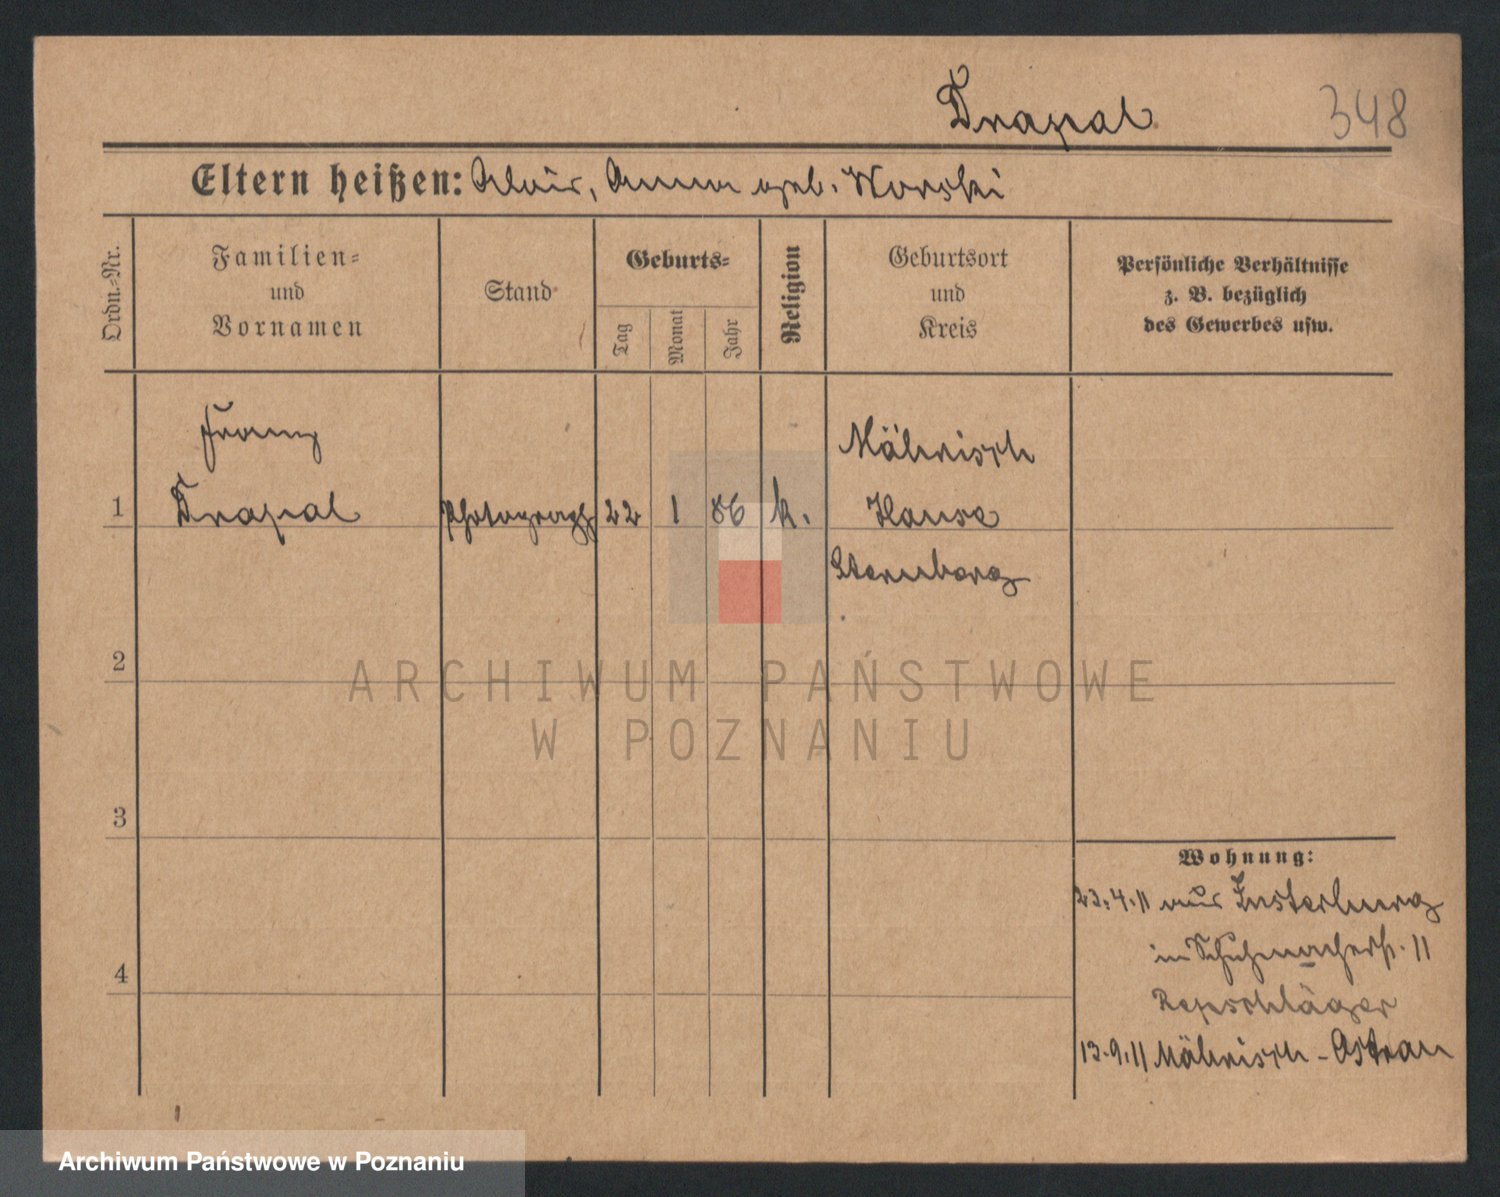 Drapal 348
Eltern heißen: Alois, Anna geb. Worski
Ordn.-Nr.
Familien-
und
Vornamen
Stand
Geburts-
Tag
Monat
Jahr
Religion
Geburtsort
und
Kreis
Persönliche Verhältnisse
z. B. bezüglich
des Gewerbes usw.
Franz
Mährisch
1 Drapal Photograph 22 1 86 k. Hause
Sternberg
2
ARCHIWUM PAŃSTWOWE
W POZNANIU
3
Wohnung:
23.4.11 aus Insterburg
in Schuhmacherstr. 11
4
Repschläger
13.9.11 Mährisch-Ostrau
Archiwum Państwowe w Poznaniu